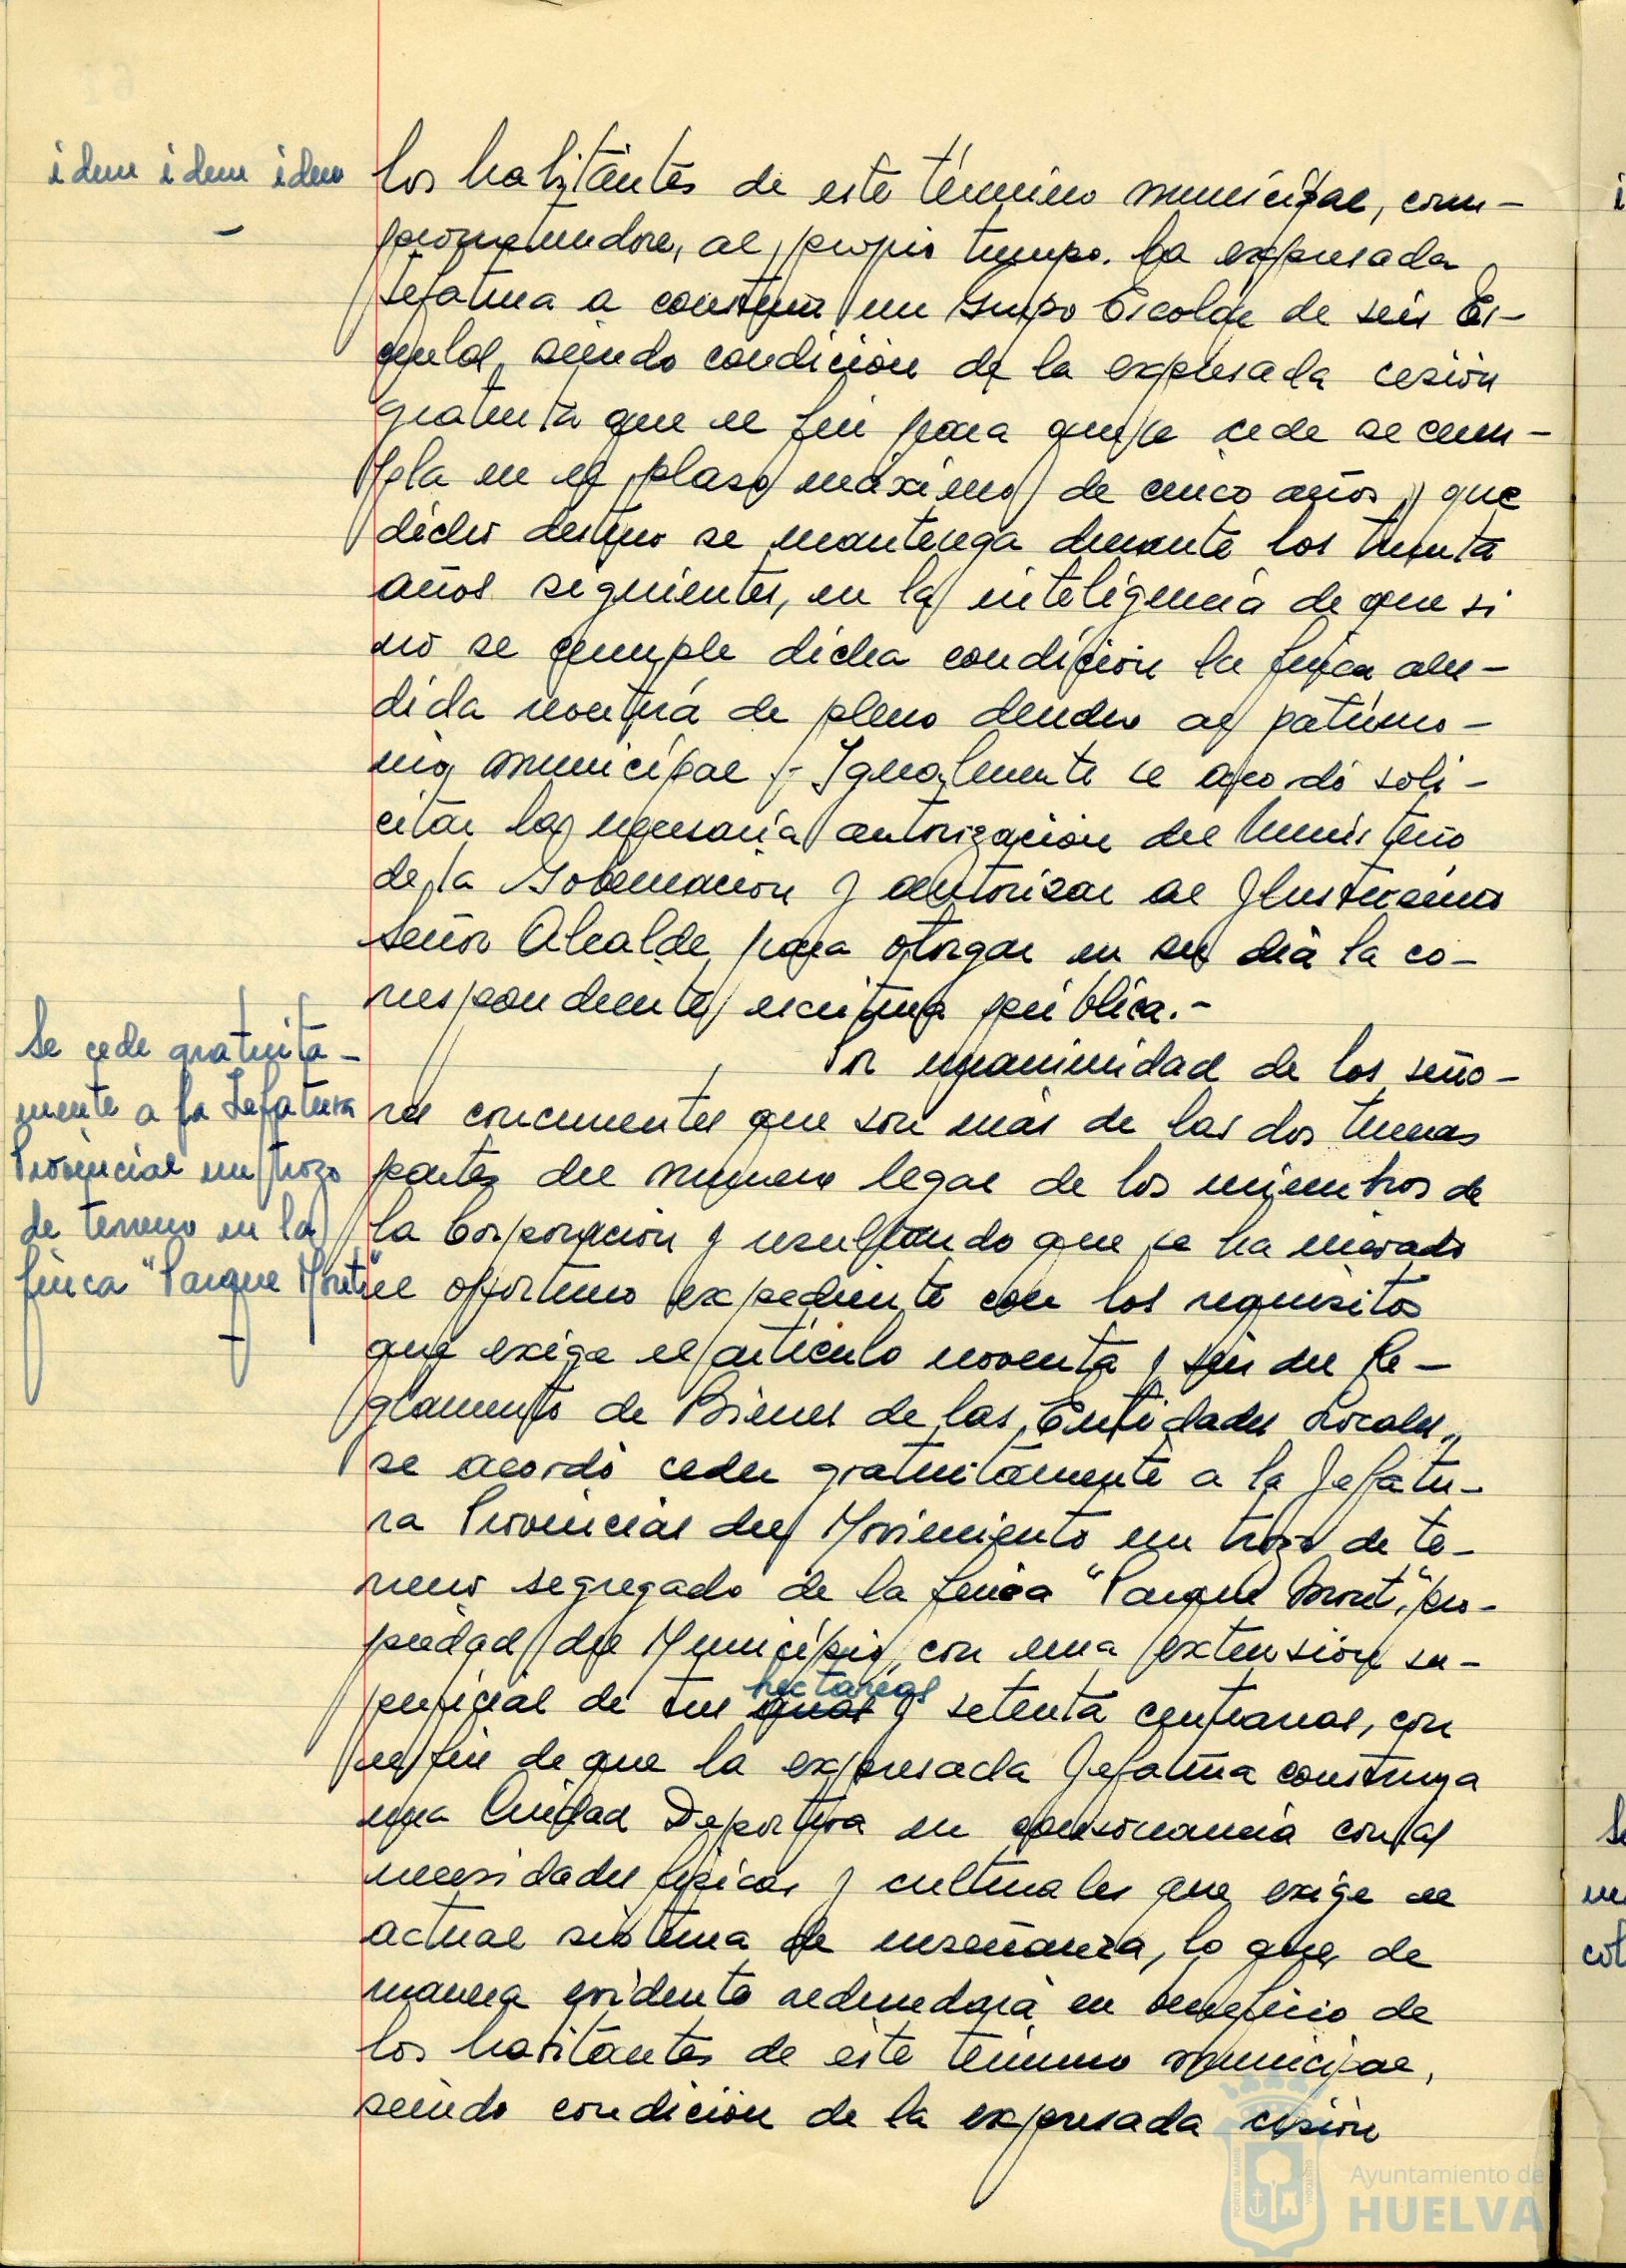 idem idem idem
los habitantes de este término municipal, com-
prometiendose, al propio tiempo. la expresada
Jefatura a construir un Grupo Escolar de seis Es-
cuelas, siendo condición de la expresada cesión
gratuita que el fin para que se cede se cum-
pla en el plazo máximo de cinco años y que
dicho destino se mantenga durante los treinta
años siguientes, en la inteligencia de que si
no se cumple dicha condición la finca alu-
dida revertirá de pleno derecho al patrimo-
nio municipal.- Igualmente se acordó soli-
citar la necesaria autorización del Ministerio
de la Gobernación y autorizar al Ilustrisimo
Señor Alcalde, para otorgar en su dia la co-
rrespondiente escritura pública.-
Se cede gratuita-
mente a la Jefatura
Provincial un trozo
de terreno en la
finca "Parque Moret"
Por unanimidad de los seño-
res concurrentes que son más de las dos terceras
partes del número legal de los miembros de
la Corporación y resultando que se ha incoado
el oportuno expediente con los requisitos
que exige el artículo noventa y seis del Re-
glamento de Bienes de las Entidades Locales,
se acordó ceder gratuitamente a la Jefatu-
ra Provincial del Movimiento un trozo de te-
rreno segregado de la finca "Parque Moret", pro-
piedad del Municipio, con una extensión su-
hectáreas
perficial de tres áreas y setenta centiareas, con
el fin de que la expresada Jefatura construya
una Ciudad Deportiva en consonancia con las
necesidades físicas y culturales que exige el
actual sistema de enseñanza, lo que de
manera evidente redundará en beneficio de
los habitantes de este término municipal,
siendo condición de la expresada cesión
Ayuntamiento de
HUELVA